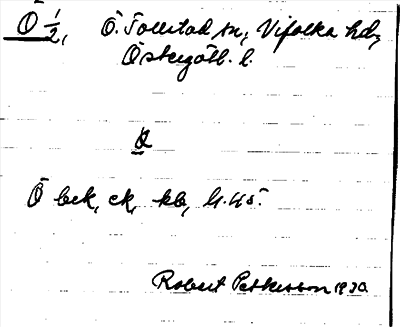 Ö 1/2, Ö. Tollstad sn, Vifolka hd,
Östergötl. l.
Ö bck, ck, kb, H.
Robert Petterson 1930.